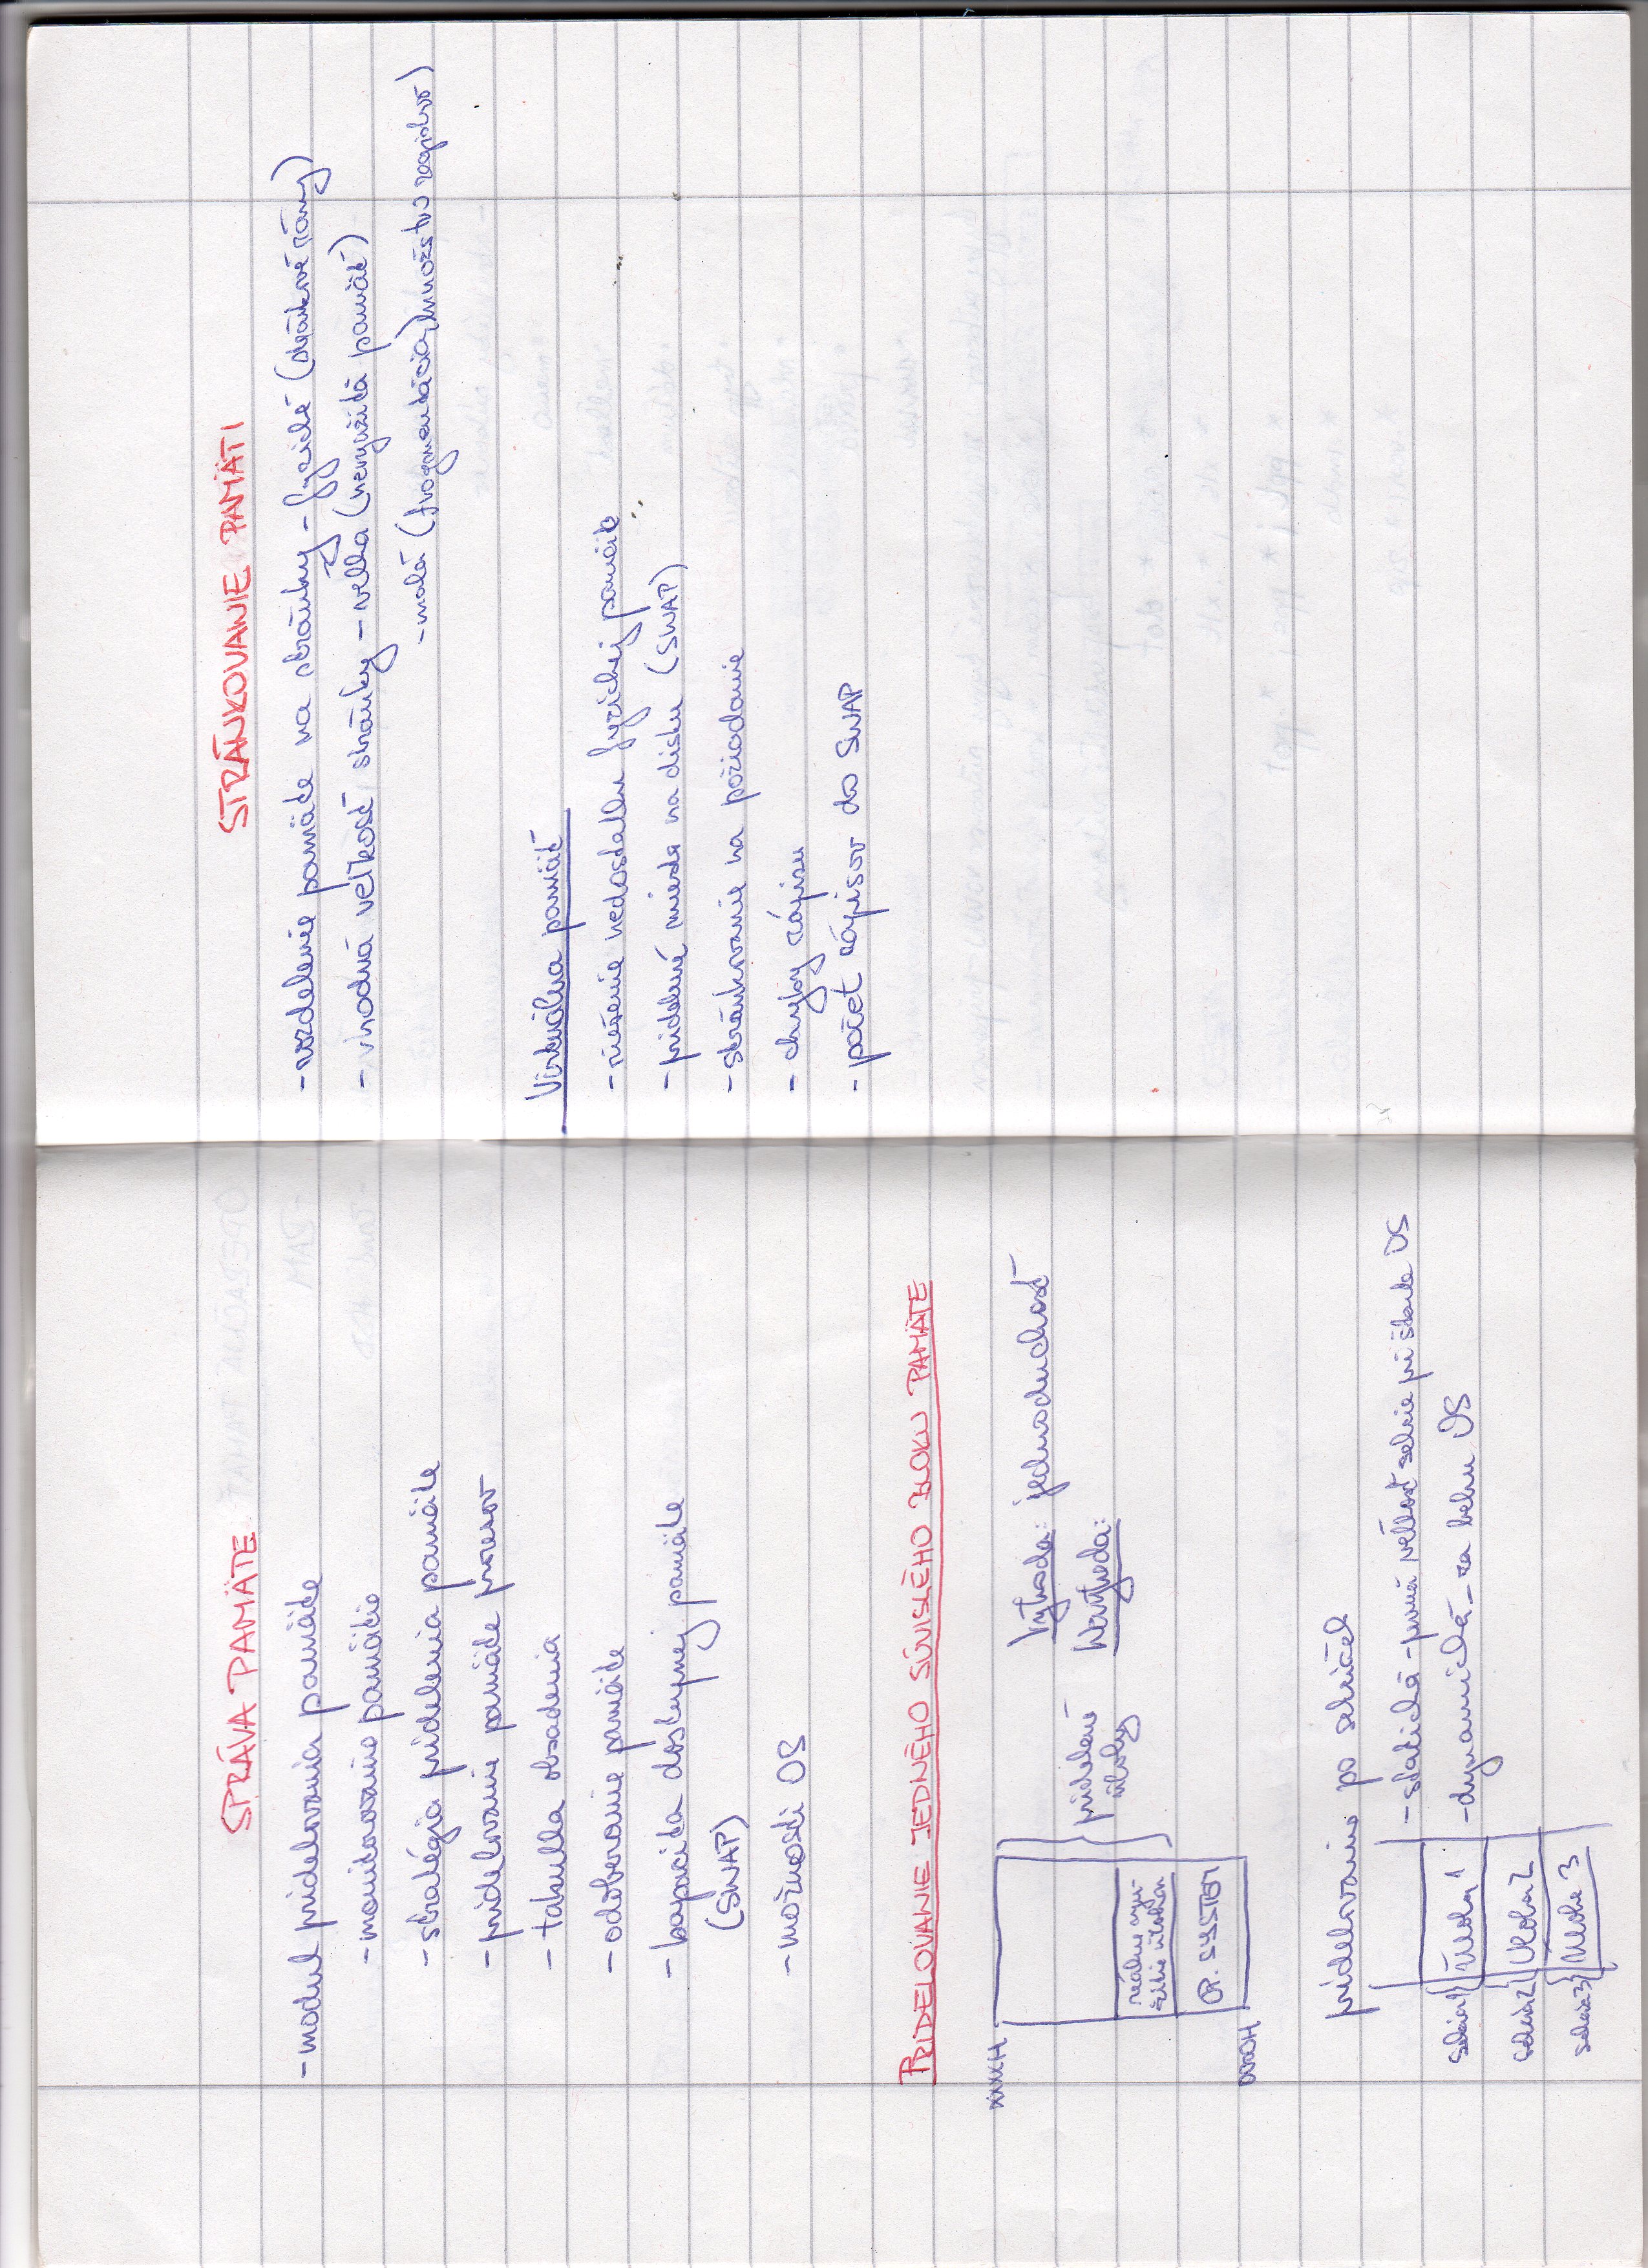 SPRÁVA PAMÄTE
- modul prideľovania pamäte
- monitorovanie pamäte
- stratégia pridelenia pamäte
- prideľovanie pamäte procesov
- tabuľka obsadenia
- odoberanie pamäte
- kapacita dostupnej pamäte
(SWAP)
- možnosti OS
PRIDEĽOVANIE JEDNÉHO SÚVISLÉHO BLOKU PAMÄTE
XXXXH
pridelené
úlohy
Výhoda: jednoduchosť
Nevýhoda:
reálne vyu-
žitie úlohou
OP. SYSTÉM
0000H
prideľovanie po sekciách
sekcia1 { Úloha 1
- statická - pevná veľkosť sekcie pri štarte OS
sekcia2 { Úloha 2
- dynamická - za behu OS
sekcia3 { Úloha 3
STRÁNKOVANIE PAMÄTI
- rozdelenie pamäte na stránky - fyzické (stránkové rámy)
- vhodná veľkosť stránky - veľká (nevyužitá pamäť)
- malá (fragmentácia, množstvo registrov)
Virtuálna pamäť
- riešenie nedostatku fyzickej pamäte
- pridelené miesta na disku (SWAP)
- stránkovanie na požiadanie
- chyby zápisu
- počet zápisov do SWAP